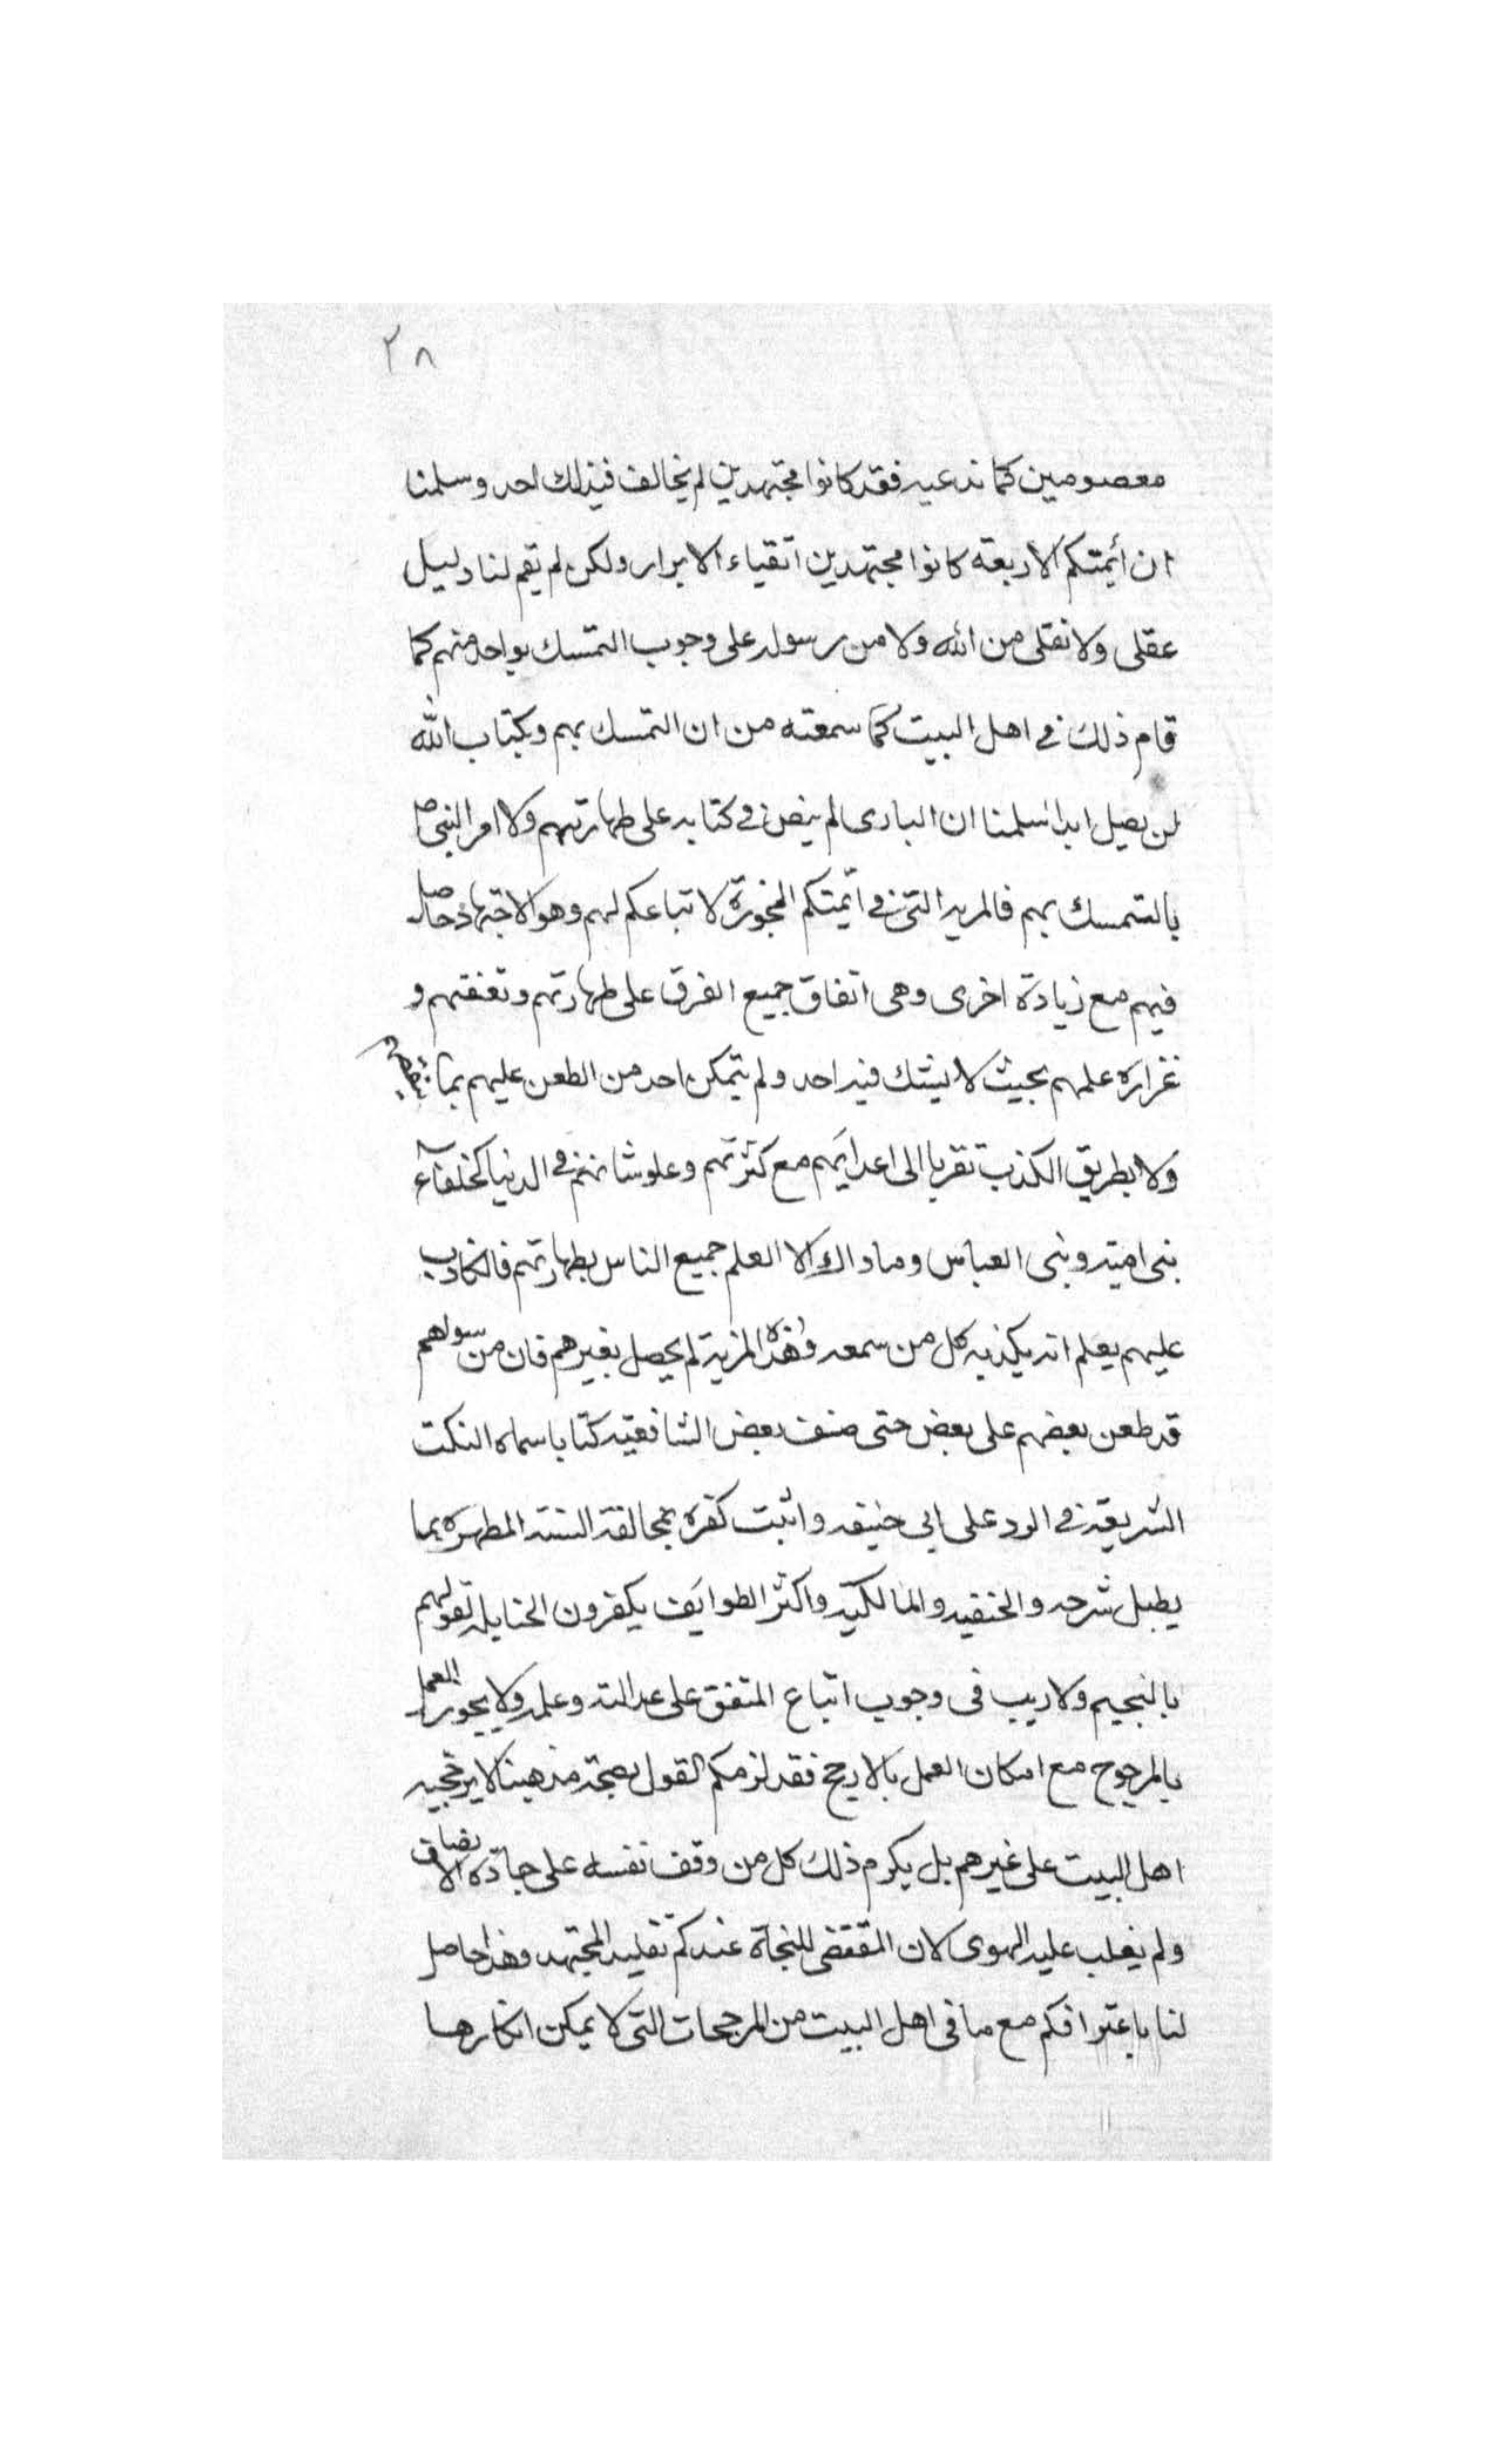 ٢٨
معصومين كما ندعيه فقد كانوا مجتهدين لم يخالف في ذلك احد وسلمنا
ان أيمتكم الاربعة كانوا مجتهدين اتقياء الابرار ولكن لم يقم لنا دليل
عقلى ولا نقلى من الله ولا من رسوله على وجوب التمسك بواحد منهم كما
قام ذلك في اهل البيت كما سمعته من ان التمسك بهم وبكتاب الله
لن يضل ابدا سلمنا ان البارى لم ينص في كتابه على طهارتهم ولا امر النبى ص
بالتمسك بهم فالمزية التى في ائمتكم المجوزة لاتباعكم لهم وهو الاجتهاد حاصل
فيهم مع زيادة اخرى وهى اتفاق جميع الفرق على طهارتهم وتعففهم و
غزارة علمهم بحيث لا يشك فيه احد ولم يتمكن احد من الطعن عليهم بما
ولا بطريق الكذب تقربا الى اعدايهم مع كثرتهم وعلو شانهم في الدنيا كخلفاء
بنى امية وبنى العباس وما ذاك الا العلم جميع الناس بطهارتهم فالكاذب
عليهم يعلم انه يكذبه كل من سمعه وهذه المزية لم يحصل بغيرهم فان من سواهم
قد طعن بعضهم على بعض حتى صنف بعض الشافعية كتابا سماه النكت
الشريفة في الرد على ابى حنيفه واثبت كفره بمخالفة السنة المطهرة بما
يطول شرحه والحنفيه والمالكية واكثر الطوايف يكفرون الحنابلة لقولهم
بالتجسيم ولا ريب فى وجوب اتباع المتفق على عدالته وعلمه ولا يجوز العمل
بالمرجوح مع امكان العمل بالارجح فقد لزمكم القول بصحة مذهبنا لا ترجحيه
اهل البيت على غيرهم بل يكرم ذلك كل من وقف نفسه على جادة الانصاف
ولم يغلب عليه الهوى لان المقتضى للنجاة عندكم تقليد المجتهد وهذا حاصل
لنا باعترافكم مع ما فى اهل البيت من المرجحات التى لا يمكن انكارها